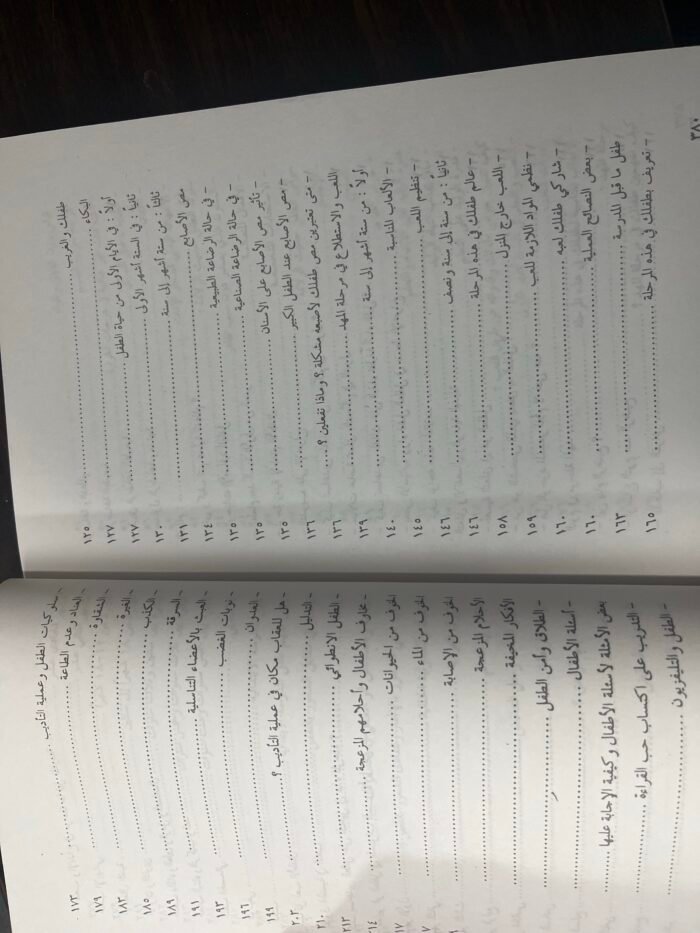 طفلك والغريب ........
البكاء ........ ١٢٥
أولاً : في الأيام الأولى من حياة الطفل ........ ١٢٧
ثانياً : في الستة أشهر الأولى ........ ١٢٧
ثالثاً : من ستة أشهر إلى سنة ........ ١٣٠
مص الأصابع ........ ١٣١
- في حالة الرضاعة الطبيعية ........ ١٣٤
- في حالة الرضاعة الصناعية ........ ١٣٥
- تأثير مص الأصابع على الأسنان ........ ١٣٥
- مص الأصابع عند الطفل الكبير ........ ١٣٥
- متى تعتبرين مص طفلك لأصبعه مشكلة ؟ وماذا تفعلين ؟ .... ١٣٦
اللعب والاستطلاع في مرحلة المهد ........ ١٣٦
أولاً : من ستة أشهر إلى سنة ........ ١٣٩
- الألعاب المناسبة ........ ١٤٠
- تنظيم اللعب ........ ١٤٥
ثانياً : من سنة إلى سنة ونصف ........ ١٤٦
- عالم طفلك في هذه المرحلة ........ ١٤٦
- اللعب خارج المنزل ........ ١٥٨
- نظمي المواد اللازمة للعب ........ ١٥٩
- شاركي طفلك لعبه ........ ١٦٠
- بعض النصائح العملية ........ ١٦٠
طفل ما قبل المدرسة ........ ١٦٣
- تعريف بطفلك في هذه المرحلة ........ ١٦٥
٣٨٠
- سلوكيات الطفل وعملية التأديب ........
- العناد وعدم الطاعة ........ ١٧٣
- الشقاوة ........ ١٧٩
- الغيرة ........ ١٨٣
- الكذب ........ ١٨٥
- السرقة ........ ١٨٩
- العبث بالأعضاء التناسلية ........ ١٩١
- نوبات الغضب ........ ١٩٣
- العدوان ........ ١٩٦
- هل للعقاب مكان في عملية التأديب ؟ ........ ١٩٩
- التدليل ........ ٢٠٣
- الطفل الانطوائي ........ ٢١٠
- مخاوف الأطفال وأحلامهم المزعجة ........ ٢١٣
الخوف من الحيوانات ........ ٢١٤
الخوف من الماء ........
الخوف من الإصابة ........
الأحلام المزعجة ........
الأفكار المخيفة ........
- الطلاق وأمن الطفل ........
- أسئلة الأطفال ........
بعض الأمثلة لأسئلة الأطفال وكيفية الإجابة عليها ........
- التدريب على اكتساب حب القراءة ........
- الطفل والتليفزيون ........